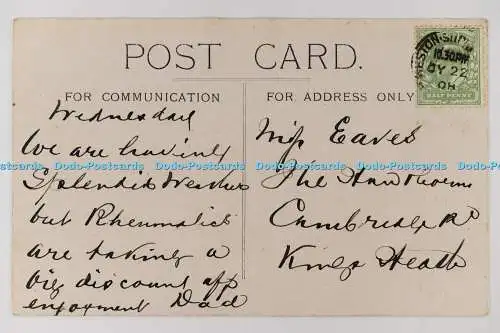 POST CARD.
FOR COMMUNICATION
FOR ADDRESS ONLY
WESTON-SUPER
10.30PM
JY 22
08
HALF PENNY
Wednesday
We are having
Splendid Weather
but Rheumatics
are taking a
big discount off
enjoyment Dad
Miss Eaves
The Hawthorns
Cambridge Rd
Kings Heath
Dodo-Postcards Dodo-Postcards Dodo-Postcards Dodo-Postcards Dodo-Postcards